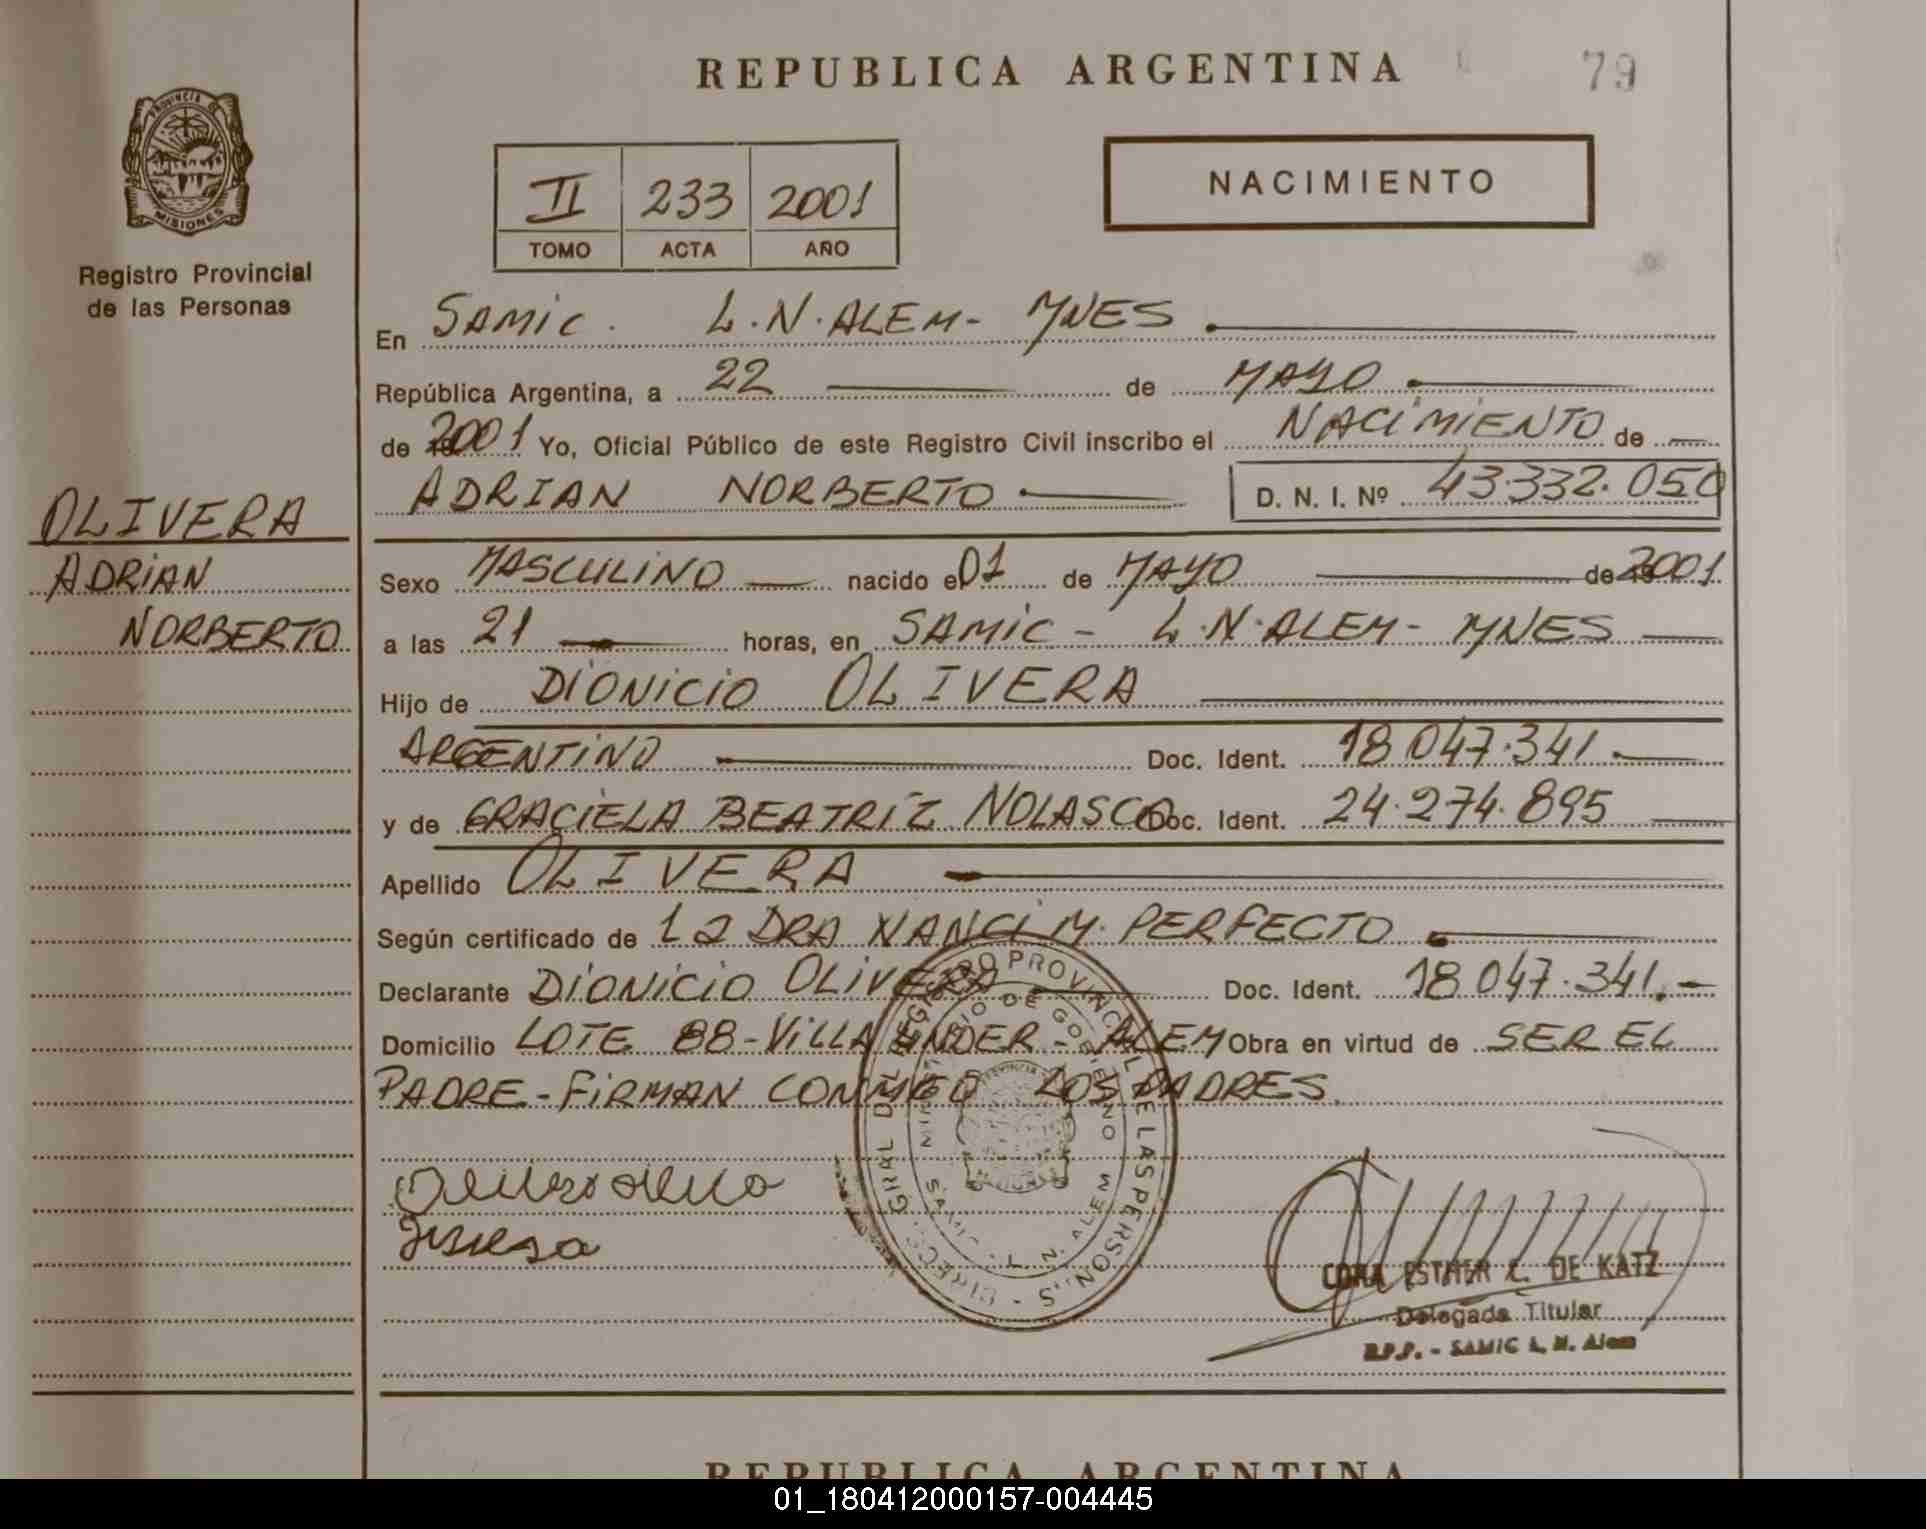 REPUBLICA ARGENTINA
79
PROVINCIA DE
MISIONES
Registro Provincial
de las Personas
II 233 2001
TOMO ACTA AÑO
NACIMIENTO
En SAMIC. L.N.ALEM- MNES
República Argentina, a 22 de MAYO
de 2001 Yo, Oficial Público de este Registro Civil inscribo el NACIMIENTO de
ADRIAN NORBERTO D. N. I. Nº 43.332.050
OLIVERA
ADRIAN
NORBERTO
Sexo MASCULINO nacido el 01 de MAYO de 2001
a las 21 horas, en SAMIC - L.N.ALEM- MNES
Hijo de DIONICIO OLIVERA
ARGENTINO Doc. Ident. 18.047.341.
y de GRACIELA BEATRIZ NOLASCO Doc. Ident. 24.274.895
Apellido OLIVERA
Según certificado de la DRA NANCI M. PERFECTO
Declarante DIONICIO OLIVERA Doc. Ident. 18.047.341.-
Domicilio LOTE 88-VILLA ENDER- ALEM Obra en virtud de SER EL
PADRE-FIRMAN CONMIGO LOS PADRES.
PROVINCIAL DE LAS PERSONAS
MINISTERIO DE GOBIERNO
SAMIC L. N. ALEM
CORA ESTHER C. DE KATZ
Delegada Titular
R.P.P. - SAMIC L. N. Alem
REPUBLICA ARGENTINA
01_180412000157-004445